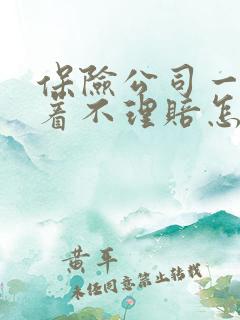 保險公司一
着不理賠怎
黄平
未经同意禁止转载